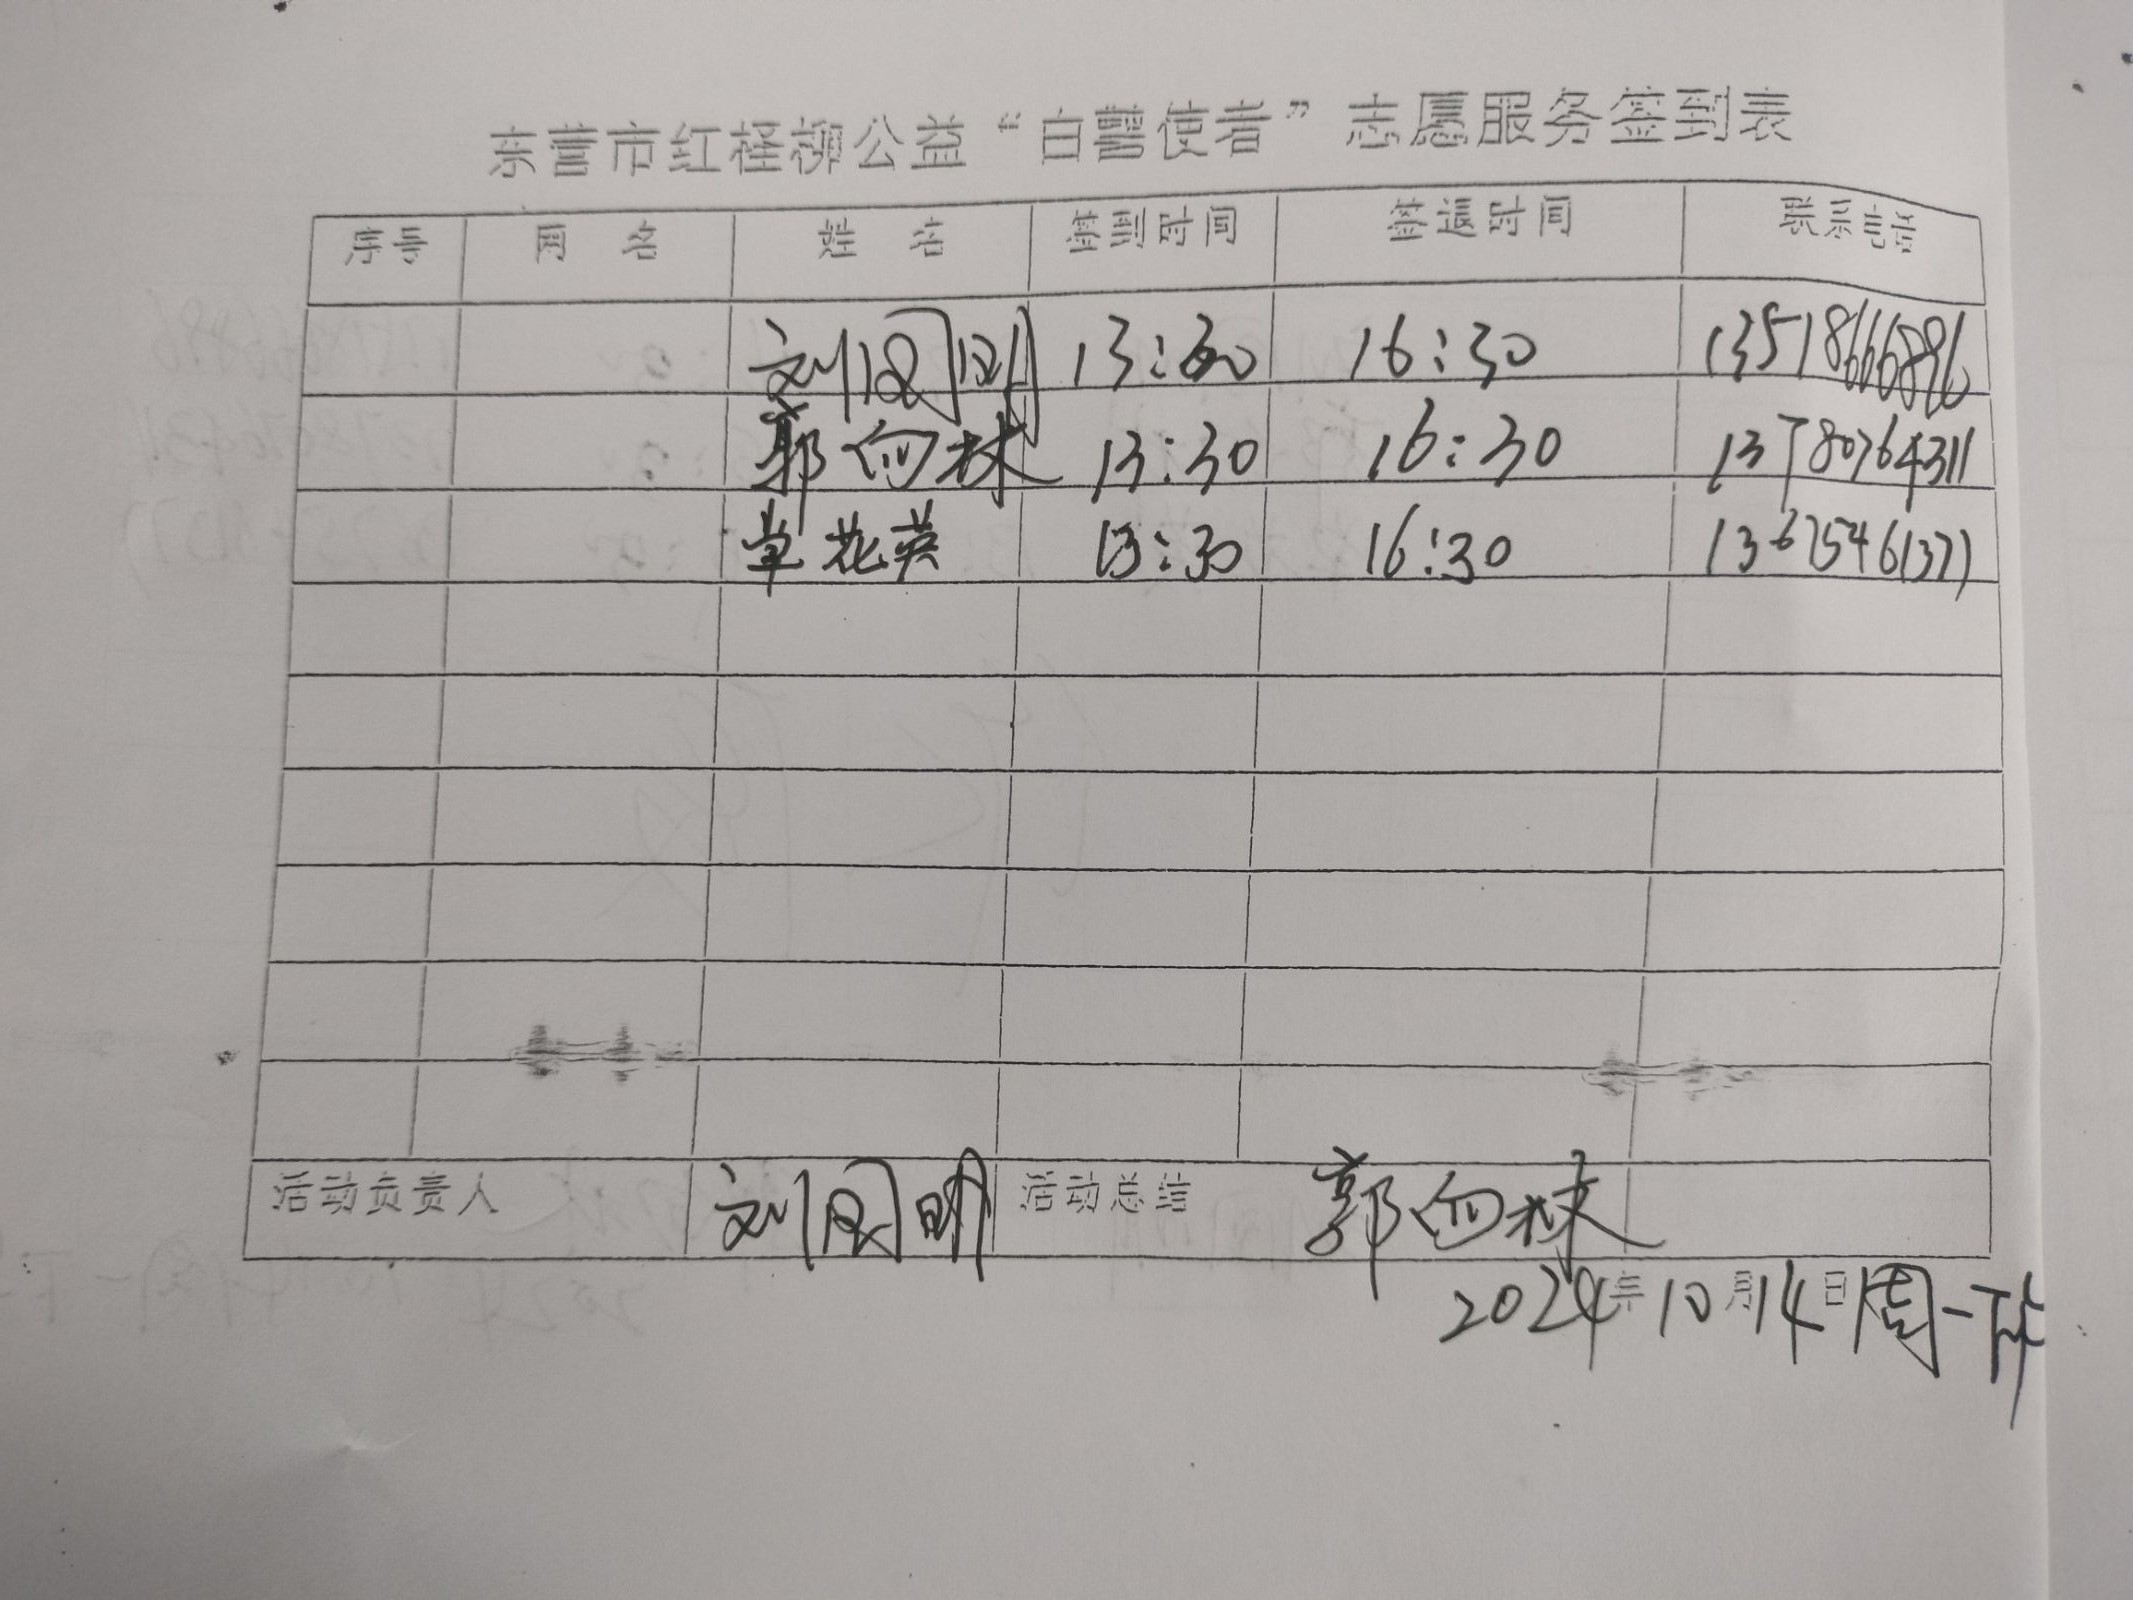 东营市红柽柳公益“白鹭使者”志愿服务签到表
序号 网 名 姓 名 签到时间 签退时间 联系电话
刘国明 13:30 16:30 13518666896
郭向林 13:30 16:30 13780764311
单花英 13:30 16:30 13675461377
活动负责人 刘国明 活动总结 郭向林
2024年10月14日周一下午